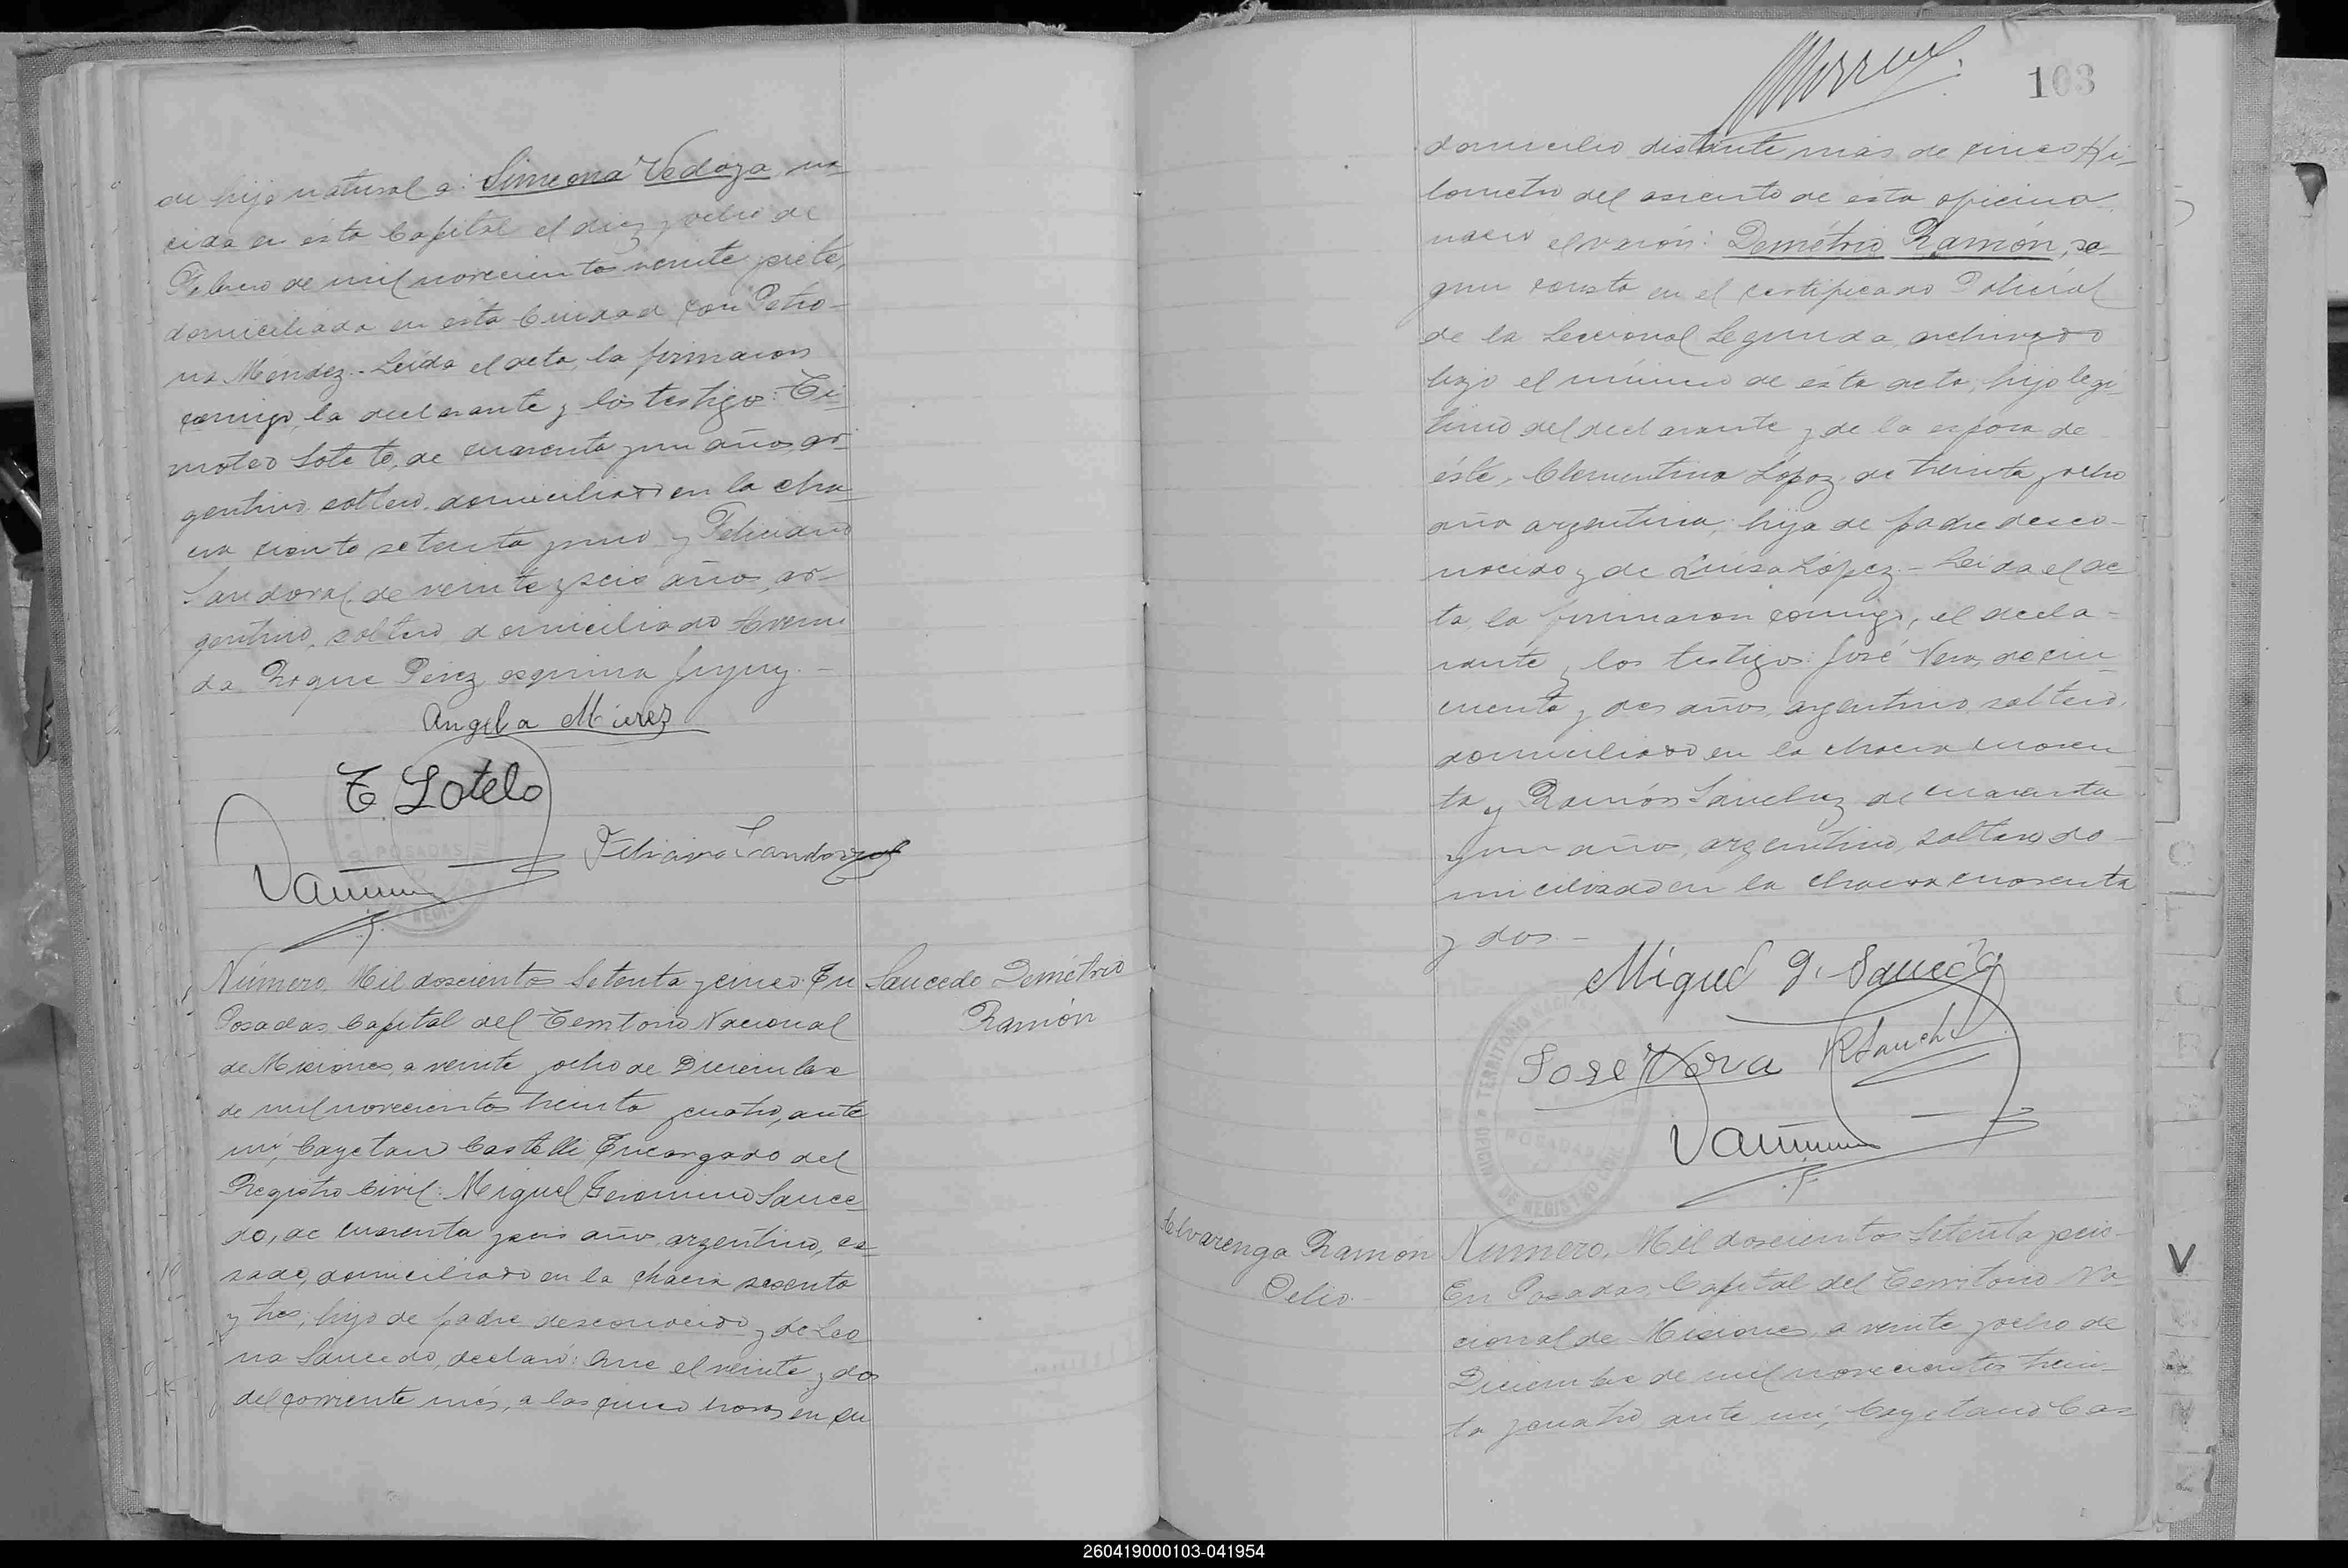 su hija natural a: Simeona Vedoya, na-
cida en ésta Capital el diez y ocho de
Febrero de mil novecientos veinte y siete,
domiciliada en esta Ciudad con Petro-
na Méndez.- Leída el acta, la firmaron
conmigo, la declarante y los testigos: Ti-
moteo Sotelo, de cuarenta y un años, ar-
gentino, soltero, domiciliado en la cha-
cra ciento setenta y uno y Feliciano
Sandoval, de veinte y seis años, ar-
gentino, soltero, domiciliado Aveni-
da Roque Pérez esquina Jujuy.-
Angela
T. Sotelo
POSADAS
Feliciano Sandoval
Número, Mil doscientos Setenta y cinco. En
Posadas, Capital del Territorio Nacional
de Misiones, a veinte y ocho de Diciembre
de mil novecientos treinta y cuatro, ante
mí, Cayetano Castelli Encargado del
Registro Civil: Miguel Geronimo Sauce-
do, de cuarenta y seis años, argentino, ca-
sado, domiciliado en la chacra sesenta
y tres, hijo de padre desconocido y de Leo-
na Saucedo, declaró: Que el veinte y dos
del corriente més, a las cinco horas, en su
Saucedo Demétrio
Ramón
103
domicilio distante más de cinco Ki-
lometro del asiento de ésta oficina
nació el varón: Demétrio Ramón, se-
gun consta en el certificado Policial
de la Seccional Segunda, archivado
bajo el número de ésta acta; hijo legí-
timo del declarante y de la esposa de
éste, Clementina López, de treinta y ocho
años argentina, hija de padre desco-
nocido y de Luisa López.- Leida el ac-
ta, la firmaron conmigo, el decla-
rante y los testigos: José Vera, de cin-
cuenta y dos años, argentino, soltero,
domiciliado en la chacra cuaren-
ta y Ramón Sanchez de cuarenta
y un años, argentino, soltero, do-
miciliado en la chacra cuarenta
y dos.-
Miguel G. Saucedo
José Vera R Sanche
TERRITORIO NACIONAL
OFICINA DE REGISTRO CIVIL
POSADAS
Alvarenga Ramón
Delio.-
Número, Mil doscientos Setenta y seis.-
En Posadas, Capital del Territorio Na-
cional de Misiones, a veinte y ocho de
Diciembre de mil novecientos trein-
ta y cuatro, ante mí, Cayetano Cas-
V
260419000103-041954